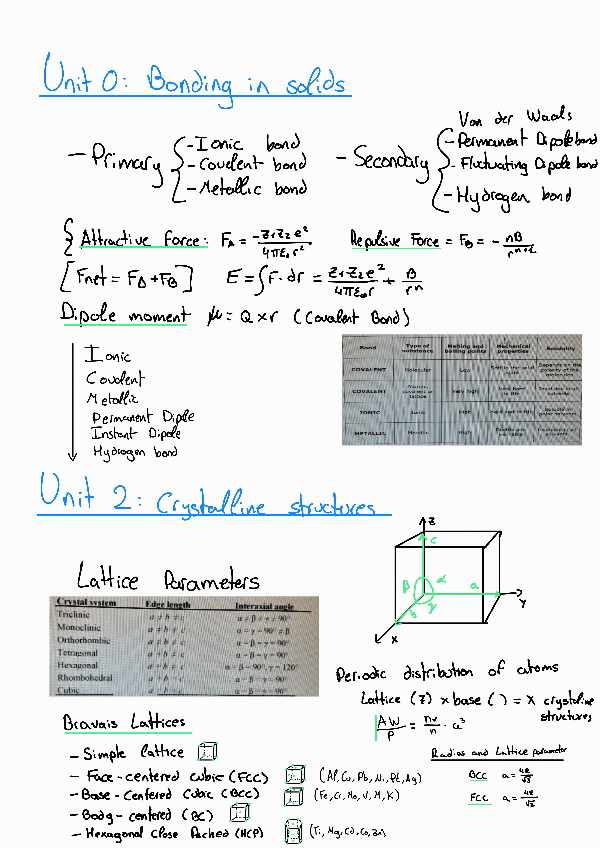 Unit 0: Bonding in solids
- Primary
- Ionic bond
- Covalent bond
- Metallic bond
- Secondary
Van der Waals
- Permanent Dipole bond
- Fluctuating Dipole bond
- Hydrogen bond
Attractive Force: F_A = -Z₁Z₂e² / 4πε₀r²
Repulsive Force = F_B = - nB / rⁿ⁺¹
[Fnet = F_A + F_B] E = ∫F·dr = Z₁Z₂e² / 4πε₀r + B / rⁿ
Dipole moment μ = Q × r (Covalent Bond)
Ionic
Covalent
Metallic
Permanent Diple
Instant Dipole
Hydrogen bond
Bond Type of substance Melting and boiling points Mechanical properties Solubility
COVALENT Molecular Low Depends on the polarity of the molecules
COVALENT Very high Very hard
IONIC Ionic High
METALLIC Metallic High
Unit 2: Crystalline structures
Lattice Parameters
Z
c
β α a
b γ
Y
X
Crystal system Edge length Interaxial angle
Triclinic a ≠ b ≠ c α ≠ β ≠ γ ≠ 90°
Monoclinic a ≠ b ≠ c α = γ = 90° ≠ β
Orthorhombic a ≠ b ≠ c α = β = γ = 90°
Tetragonal α = β = γ = 90°
Hexagonal α = β = 90°, γ = 120°
Rhombohedral
Cubic α = β = γ = 90°
Periodic distribution of atoms
Lattice (7) × base ( ) = x crystalline structures
AW / ρ = nv / n · a³
Bravais Lattices
- Simple lattice
- Face-centered cubic (FCC) (Al, Cu, Pb, Ni, Pt, Ag)
- Base-Centered Cubic (BCC) (Fe, Cr, Mo, V, M, K)
- Body-centered (BC)
- Hexagonal Close Packed (HCP) (Ti, Mg, Cd, Co, Zn)
Radius and Lattice parameter
BCC a = 4R / √3
FCC a = 4R / √2